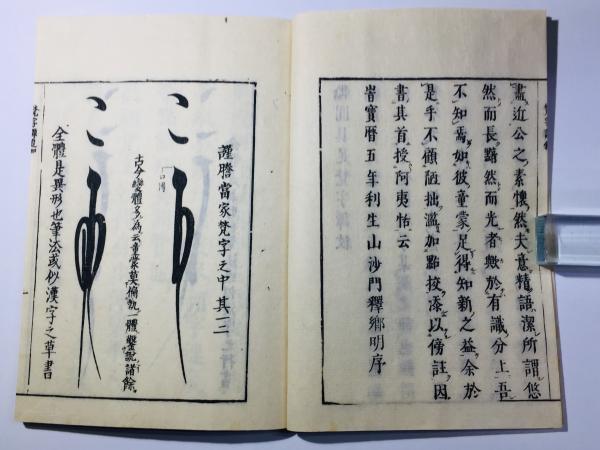 盡近公之素懷然夫意精語潔所謂悠
然而長黯然而光者歟於有識分上吾
不知焉如彼童蒙足得知新之益余於
是乎不顧陋拙濫加點挍添以傍註因
書其首授阿夷怡云
旹寳暦五年利生山沙門釋鄉明序
謹謄當家梵字之中其一二
古今變體多為云童蒙莫偏執一體鑿説諸餘
全體是異形也筆法或似漢字之草書